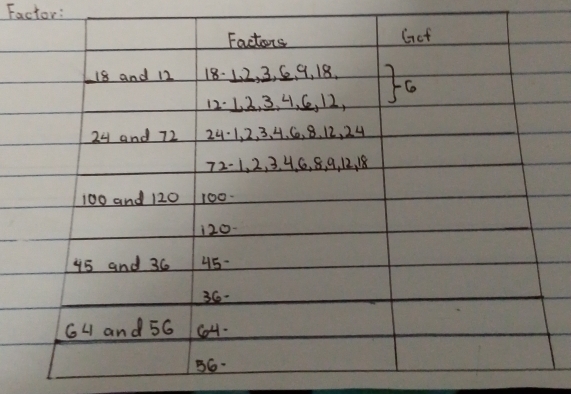 Factor:
Factors Gcf
18 and 12 18- 1,2,3,6,9,18.
12- 1,2,3,4,6,12, } 6
24 and 72 24-1,2,3,4,6,8,12,24
72-1,2,3,4,6,8,9,12,18
100 and 120 100-
120-
45 and 36 45-
36-
64 and 56 64-
56-